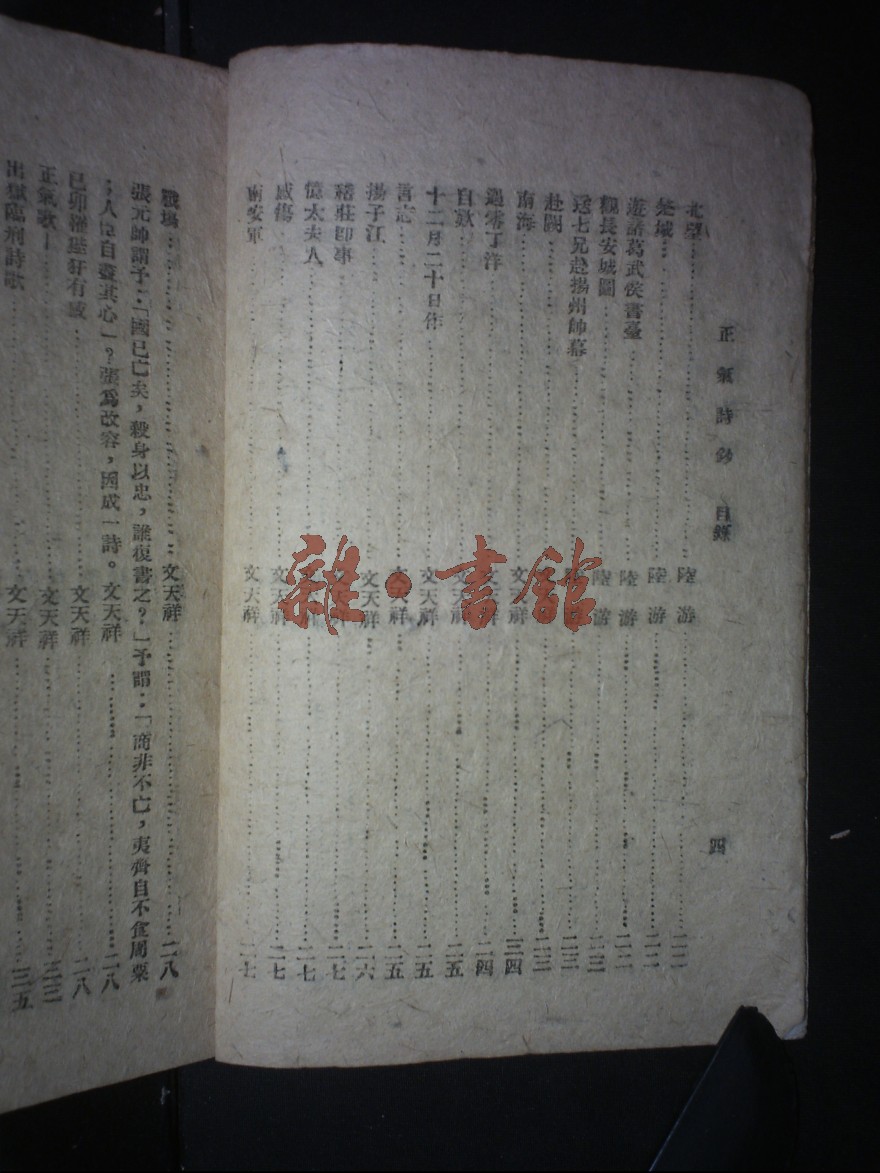 正氣詩鈔 目錄 四
北望……陸游……二二
築城……陸游……二二
遊諸葛武侯書臺……陸游……二二
觀長安城圖……陸游……二三
送七兄赴揚州帥幕……二三
赴闕……二三
南海……文天祥……三四
過零丁洋……文天祥……二四
自歎……文天祥……二五
十二月二十日作……文天祥……二五
言志……文天祥……二五
揚子江……文天祥……二六
稽莊卽事……文天祥……二七
憶太夫人……文天祥……二七
感傷……文天祥……二七
南安軍……文天祥……二七
戰場……文天祥……二八
張元帥謂予:「國已亡矣,殺身以忠,誰復書之?」予謂:「商非不亡,夷齊自不食周粟
;人臣自盡其心」?張爲改容,因成一詩。文天祥……二八
己卯 有感……文天祥……二八
正氣歌……文天祥……三三
出獄臨刑詩歌……文天祥……三五
雜·書館